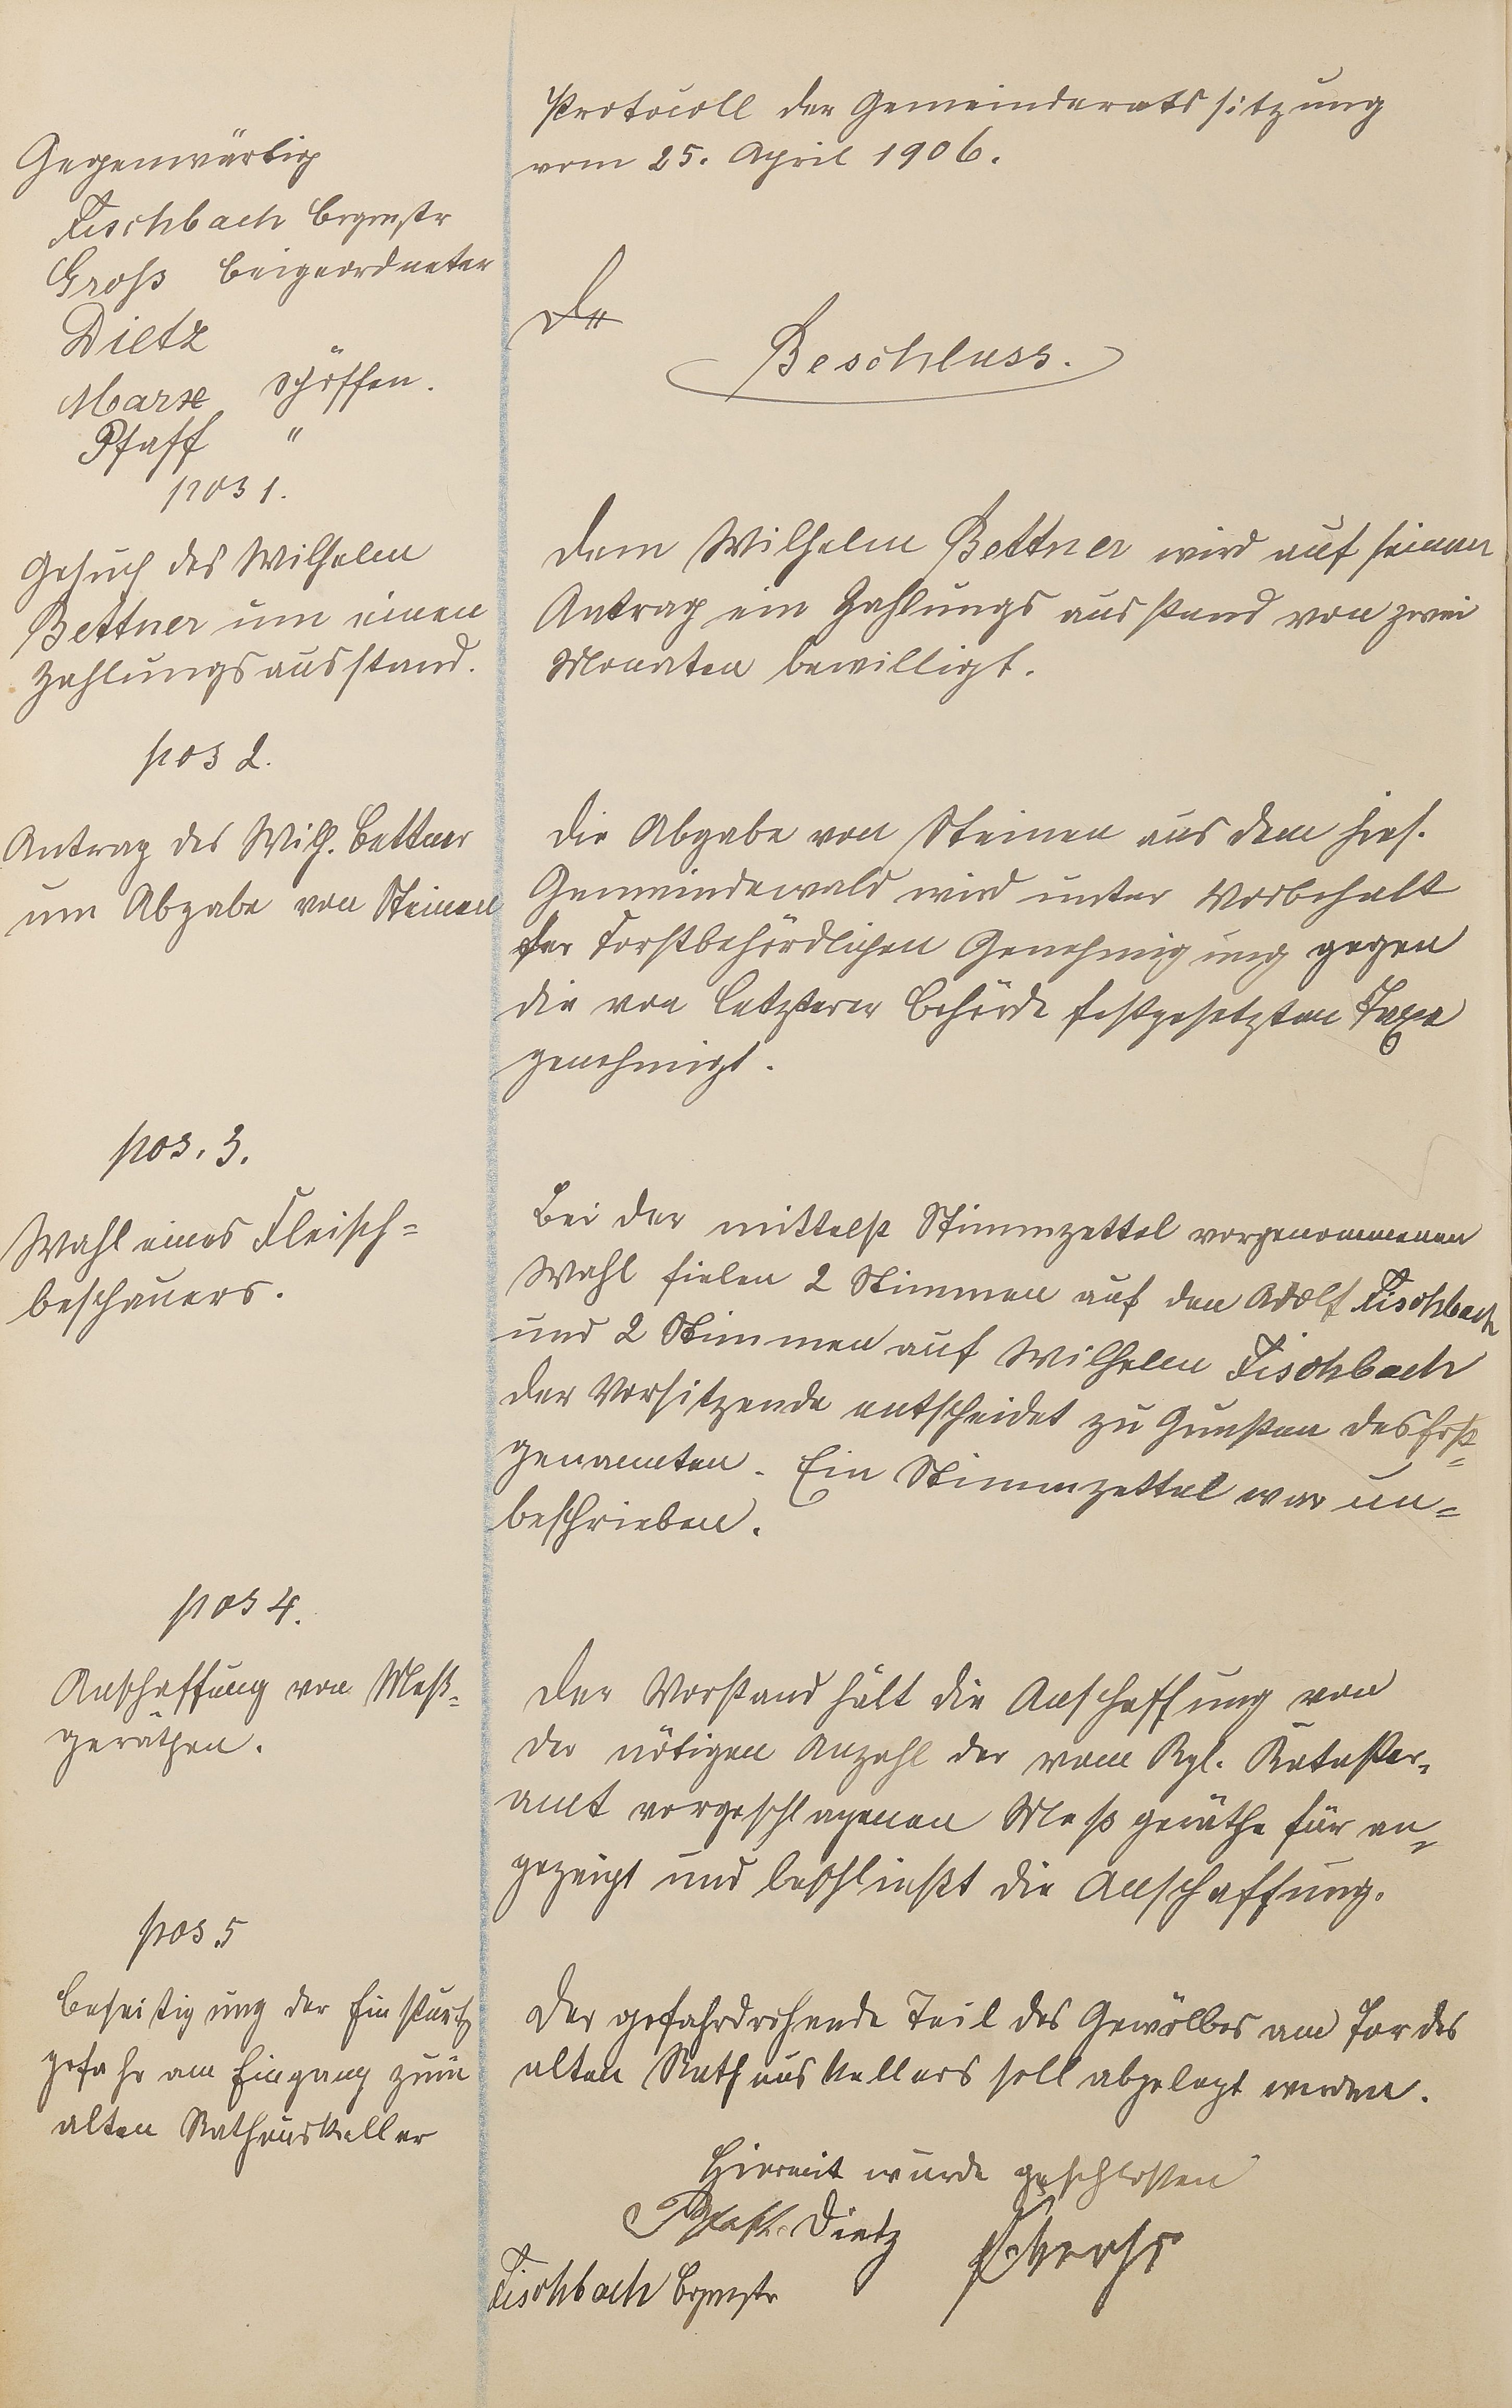 Protocoll der Gemeinderatssitzung
vom 25. April 1906.
Gegenwärtig
Fischbach Brgmstr
Groß Beigeordneter
Dietz
Marx Schöffen.
Pfaff "
De
Beschluss.
pos 1.
Gesuch des Wilhelm
Bettner um einen
Zahlungsausstand.
Dem Wilhelm Bettner wird auf seinen
Antrag ein Zahlungsausstand von zwei
Monaten bewilligt.
pos 2.
Antrag des Wilh. Bettner
um Abgabe von Steinen
Die Abgabe von Steinen aus dem hies.
Gemeindewald wird unter Vorbehalt
der Forstbehördlichen Genehmigung gegen
die von letzterer Behörde festgesetzten Taxe
genehmigt.
pos. 3.
Wahl eines Fleisch=
beschauers.
Bei der mittelst Stimmzettel vorgenommenen
Wahl fielen 2 Stimmen auf den Adolf Fischbach
und 2 Stimmen auf Wilhelm Fischbach
der Vorsitzende entscheidet zu Gunsten des Erst=
genannten. Ein Stimmzettel war un=
beschrieben.
pos 4.
Anschaffung von Meß=
geräthen.
Der Vorstand hält die Anschaffung von
der nötigen Anzahl der vom Kgl. Kataster=
amt vorgeschlagenen Meßgeräthe für an=
gezeigt und beschließt die Anschaffung.
pos 5
Beseitigung der Einsturz
gefahr am Eingang zum
alten Rathauskeller
Der gefahrdrohende Teil des Gewölbes am Tor des
alten Rathauskellers soll abgelegt werden.
Hiermit wurde geschlossen
Pfaff. Dietz
Fischbach Brgmstr